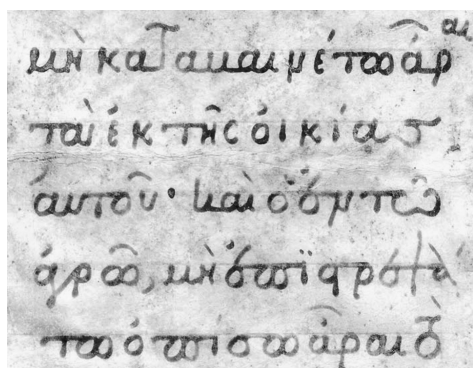 μὴ καταβαινέτω ἆραι
τὰ ἐκ τῆς οἰκίας
αυτοῦ· καὶ ὁ ἐν τῶ
ἀγρῶ, μὴ ἐπϊστρεψά
τω ὀπίσω ἆραι τὸ